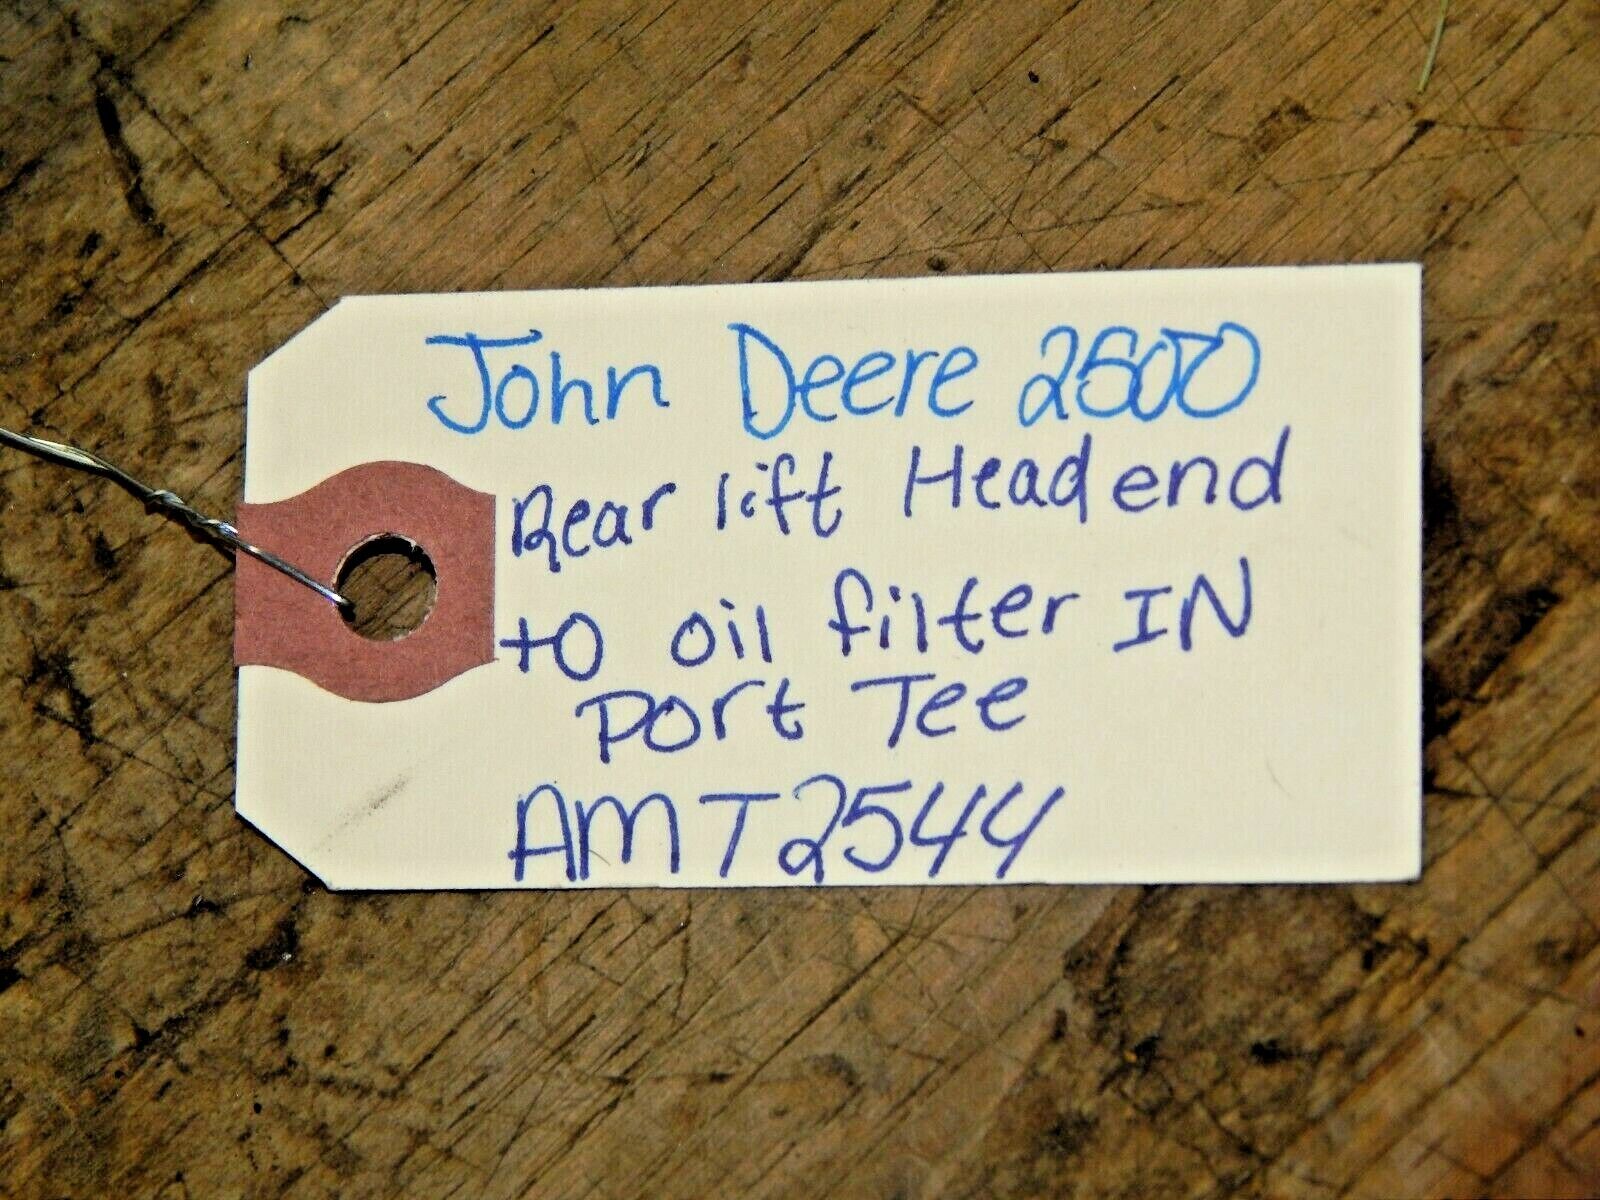 John Deere 2500
Rear lift Head end
to oil filter IN
Port Tee
AMT2544